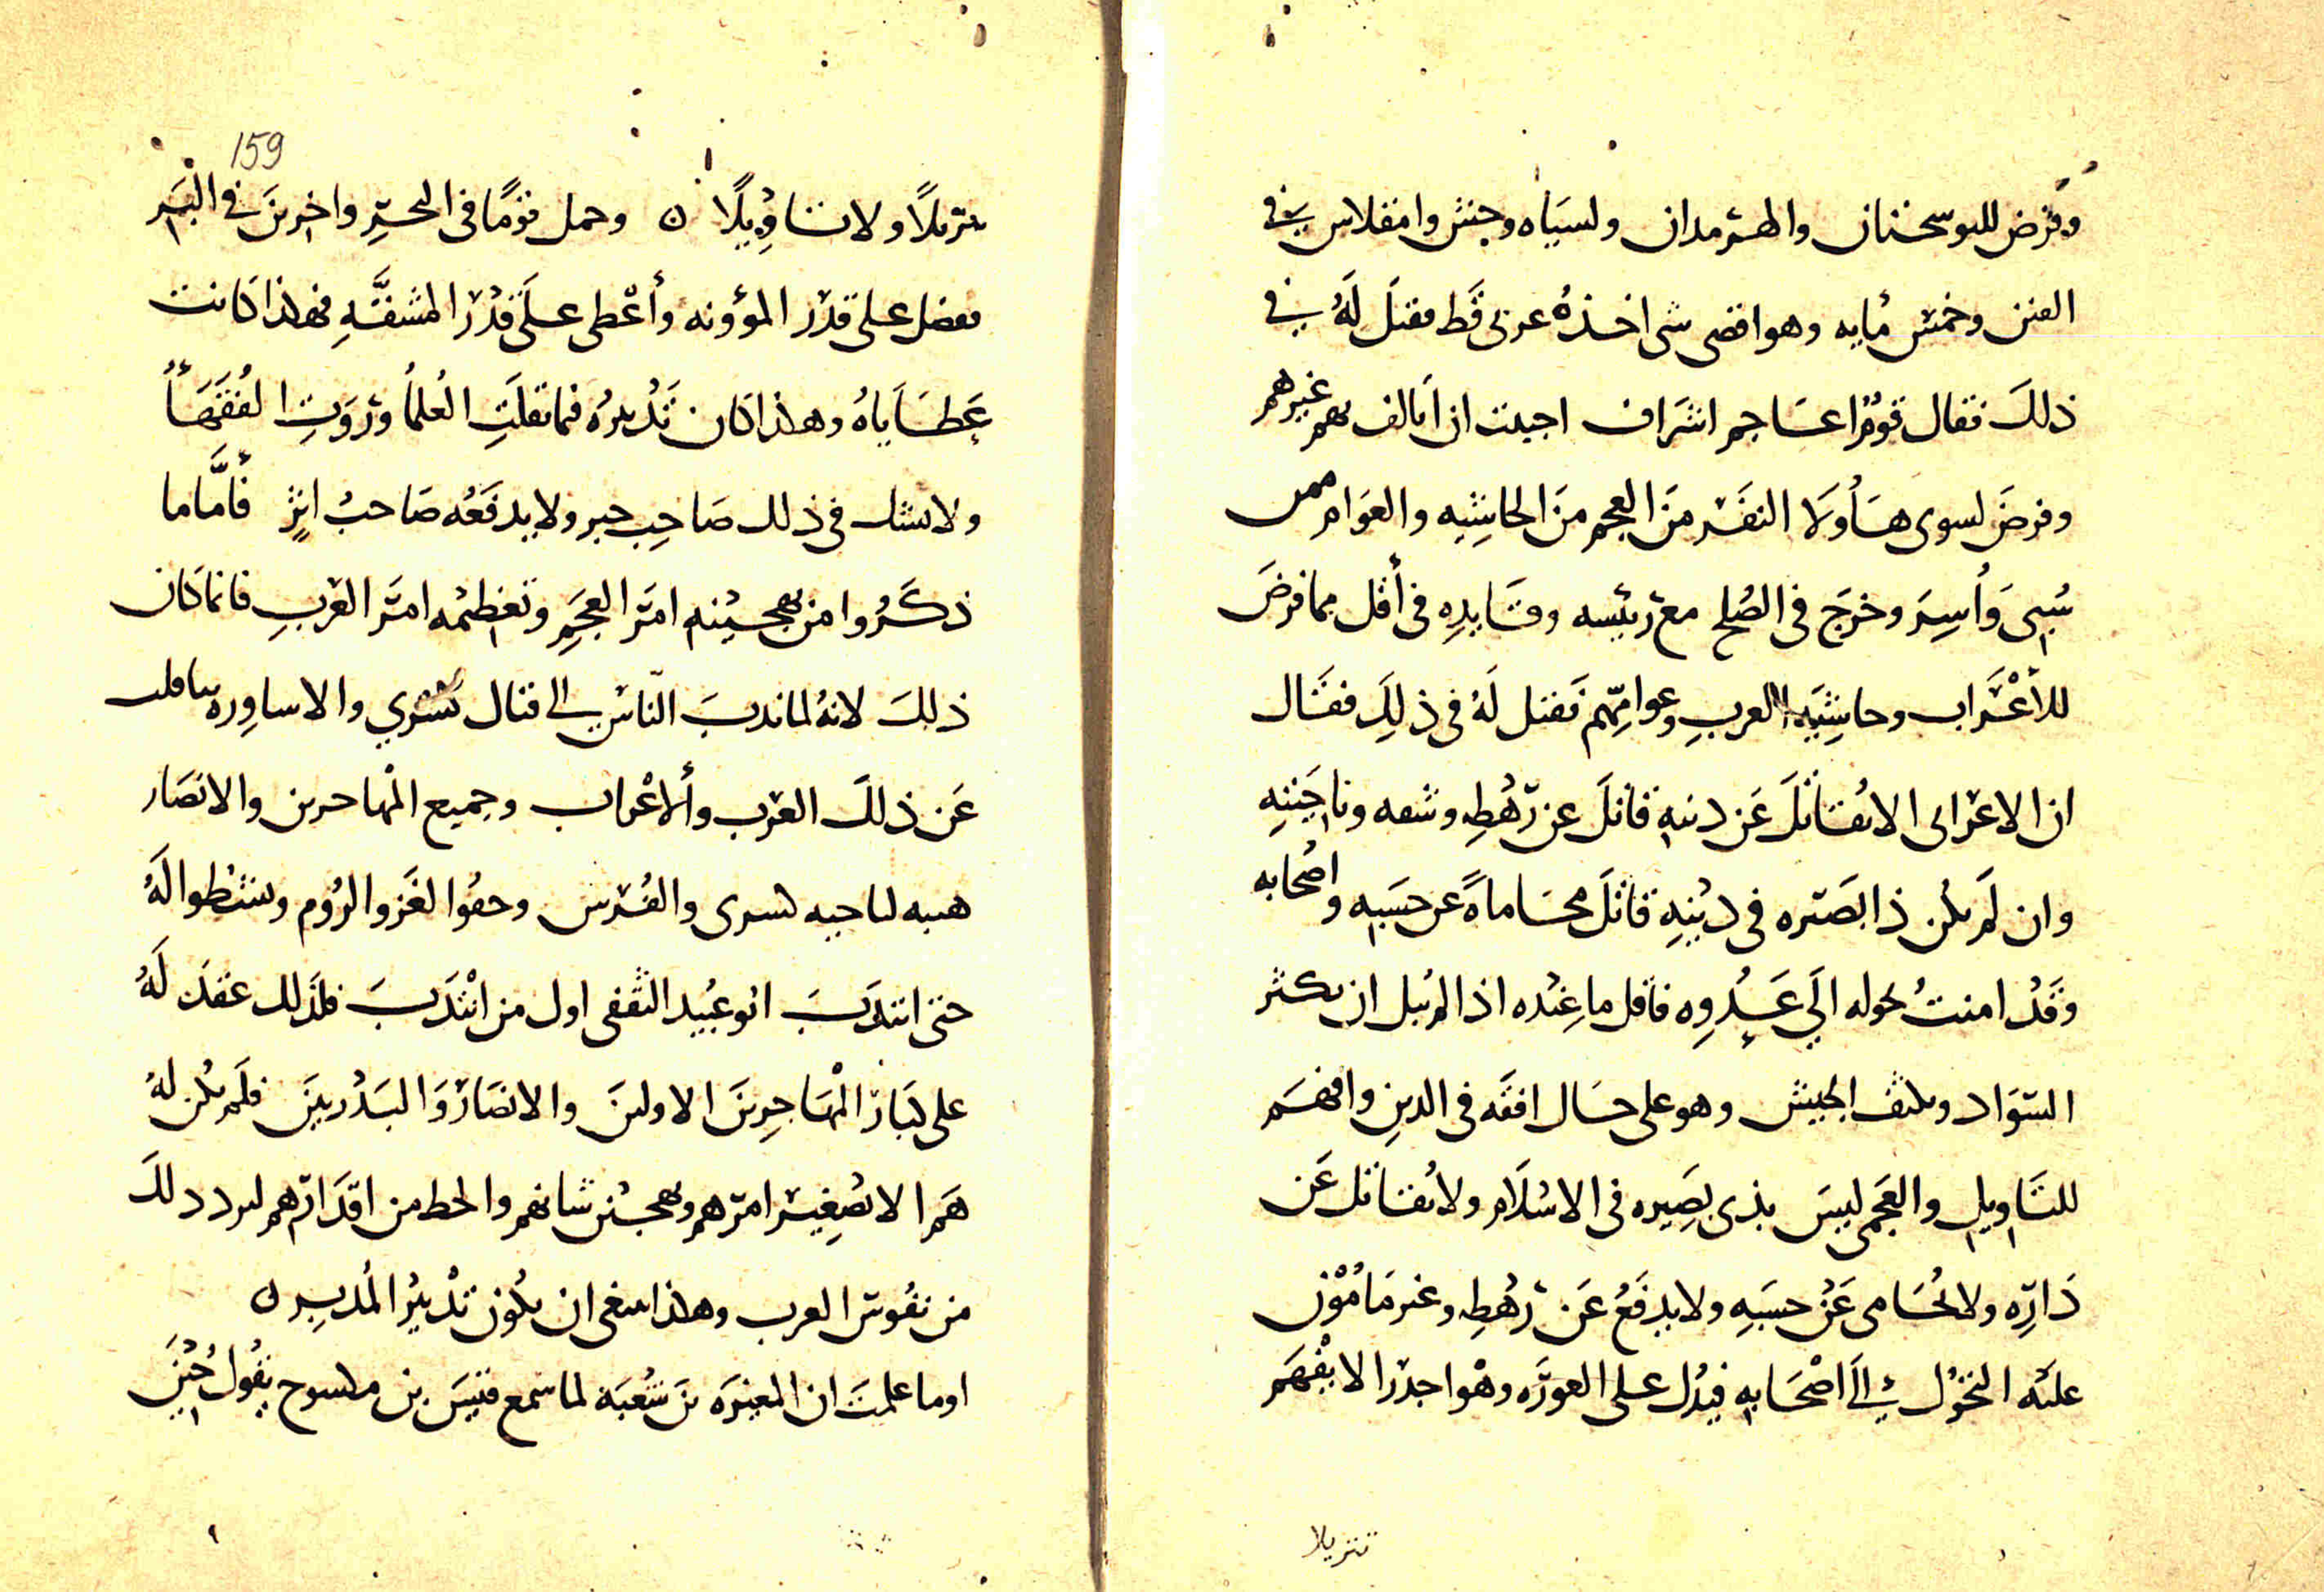 وفرض للنوشجان والهرمزان ولسياه وجنش وامقلاس في
الفين وخمس مايه وهو اقصى شى اخذه عربى قط فقيل له في
ذلك فقال قوم اعاجم اشراف احببت ان اتالف بهم غيرهم
وفرض لسوى هاولا النفر من العجم من الحاشيه والعوام ممن
سبى واسر وخرج فى الصلح مع رئيسه وقايده فى أقل مما فرض
للأعراب وحاشيه العرب وعوامهم فقيل له فى ذلك فقال
ان الاعرابى الا يقاتل عن دينه قاتل عن رهطه و وناحيته
وان لم يكن ذا بصيره فى دينه قاتل محاماة عن حسبه واصحابه
وقد امنت تحوله الى عدوه فاقل ما عنده اذا لم يبل ان يكثر
السواد ويكثف الجيش وهو على حال افقه فى الدين وافهم
للتاويل والعجمى ليس بذى بصيره فى الاسلام ولا يقاتل عن
داره ولا يحامى عن حسبه ولا يدفع عن رهطه وغير مامون
عليه التحول الى اصحابه فيدل على العوره وهو اجدر الا يفهم
تنزيلا
159
تنزيلا ولا تاويلا ن وحمل قوما فى البحر واخرين فى البر
ففضل على قدر المؤونه وأعطى على قدر المشقه فهاذا كانت
عطاياه وهاذا كان تدبيره فيما نقلت العلما وروت الفقها
ولا يشك فى ذلك صاحب خبر ولا يدفعه صاحب اثر فأما ما
ذكروا من تهجينه امر العجم وتعظيمه امر العرب فانما كان
ذلك لانه لما ندب الناس الى قتال كسرى والاساوره تثاقلت
عن ذلك العرب والأعراب وجميع المهاجرين والانصار
هيبه لناحيه كسرى والفرس وخفوا لغزو الروم ونشطوا له
حتى انتدب ابو عبيد الثقفى اول من انتدب فلذلك عقد له
على كبار المهاجرين الاولين والانصار والبدريين فلم يكن له
هم الا تصغير امرهم وتهجين شانهم والحط من اقدارهم ليرد ذلك
من نفوس العرب وهاكذا ينبغى ان يكون تدبير المدبر ن
اوما علمت ان المغيره بن شعبة لما سمع قيس بن مكسوح يقول حين